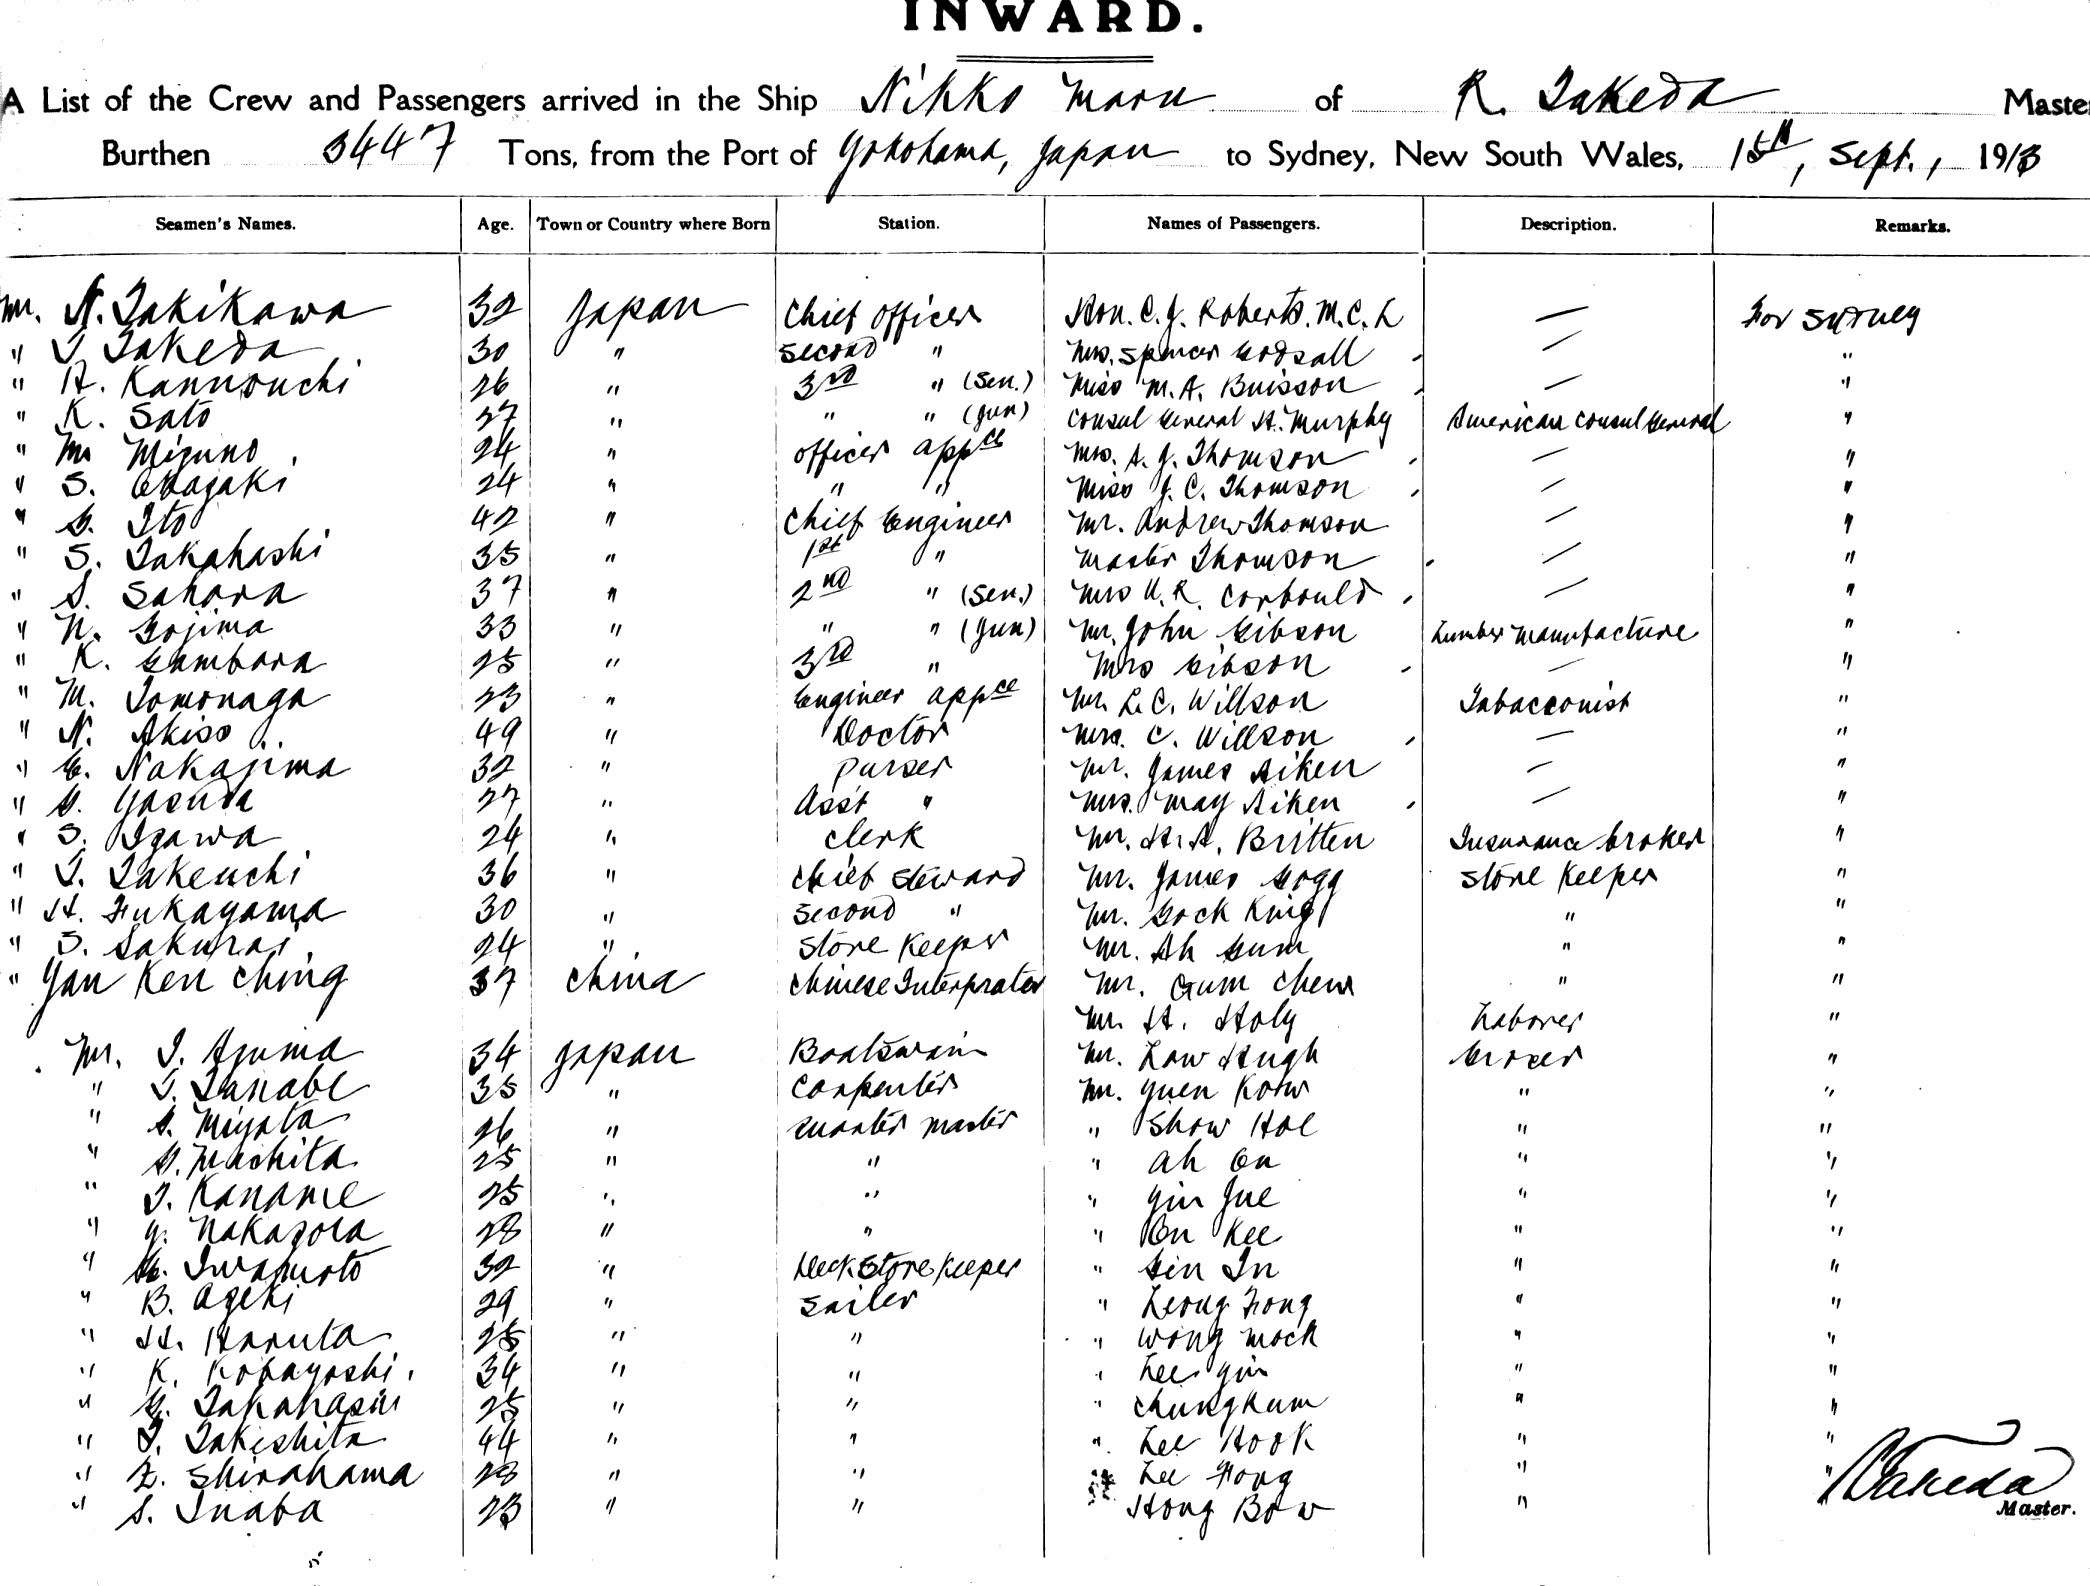 INWARD.
A List of the Crew and Passengers arrived in the Ship Nikko Maru of R. Takeda Master
Burthen 3447 Tons, from the Port of Yokohama, Japan to Sydney, New South Wales, 15th, Sept., 1913
Seamen's Names. Age. Town or Country where Born Station. Names of Passengers. Description. Remarks.
Mr. N. Takikawa 32 Japan Chief Officer Hon. C. J. Roberts. M.C.L — For Sydney
" T. Takeda 30 " Second " Mrs. Spencer Godsall — "
" H. Kannouchi 26 " 3rd " (Sen.) Miss M. A. Buisson — "
" K. Sato 27 " " " (Jun) Consul General Murphy American Consul General "
" M. Mizuno 24 " Officer appce Mrs. A. J. Thomson — "
" S. 24 " " " Miss J. C. Thomson — "
" Ito 42 " Chief Engineer Mr. Andrew Thomson — "
" S. Takahashi 35 " 1st " Master Thomson — "
" S. Sahara 37 " 2nd " (Sen.) Mrs Corbould — "
" N. Gojima 33 " " " (Jun) Mr. John Gibson Lumber Manufacture "
" K. Gambara 25 " 3rd " Mrs Gibson — "
" M. Tomonaga 23 " Engineer appce Mr. L. C. Willson Tabacconist "
" N. Akiso 49 " Doctor Mrs. C. Willson — "
" Nakajima 32 " Purser Mr. James Aiken — "
" Yasuda 27 " Ass't " Mrs. May Aiken — "
" S. Igawa 24 " Clerk Mr. H. A. Britten Insurance broker "
" T. Takeuchi 36 " Chief Steward Mr. James Gogg Store Keeper "
" H. Fukayama 30 " Second " Mr. Gock King " "
" S. Sakurai 24 " Store Keeper Mr. Ah Gum " "
" Yan Ken Ching 37 China Chinese Interprater Mr. Gum Chew " "
Mr. H. Holy Laborer "
Mr. T. Azuma 34 Japan Boatswain Mr. Law Hugh Grocer "
" T. Tanabe 35 " Carpenter Mr. Yuen Kow " "
" S. Miyata 26 " Quarter Master " Show Hoe " "
" Machita 25 " " " Ah On " "
" T. Kaname 25 " " " Yin Jue " "
" Y. Nakazora 28 " " " On Kee " "
" Iwamoto 32 " Deck Store Keeper " Gin In " "
" B. Ageki 29 " Sailer " Leong Fong " "
" H. Haruta 25 " " " Wong Mock " "
" K. Kobayashi. 34 " " " Lee Yin " "
" Takahashi 25 " " " Chung Kum " "
" T. Takeshita 44 " " " Lee Hook " "
" Z. Shirahama 28 " " Lee Fong " "
" S. Inaba 23 " " Hong Bow "
Takeda
Master.
"